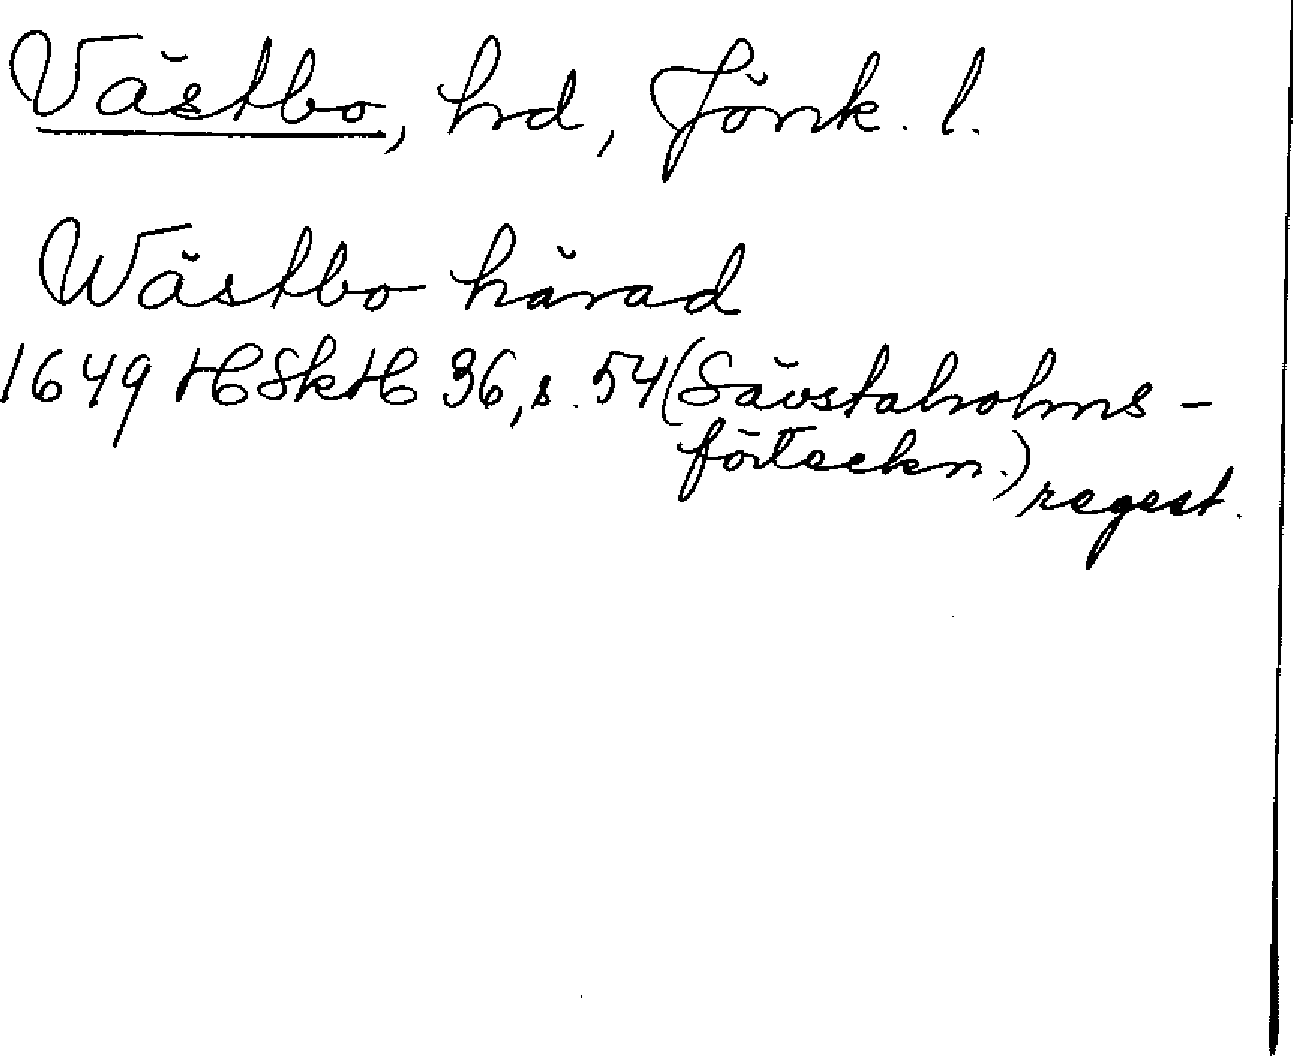 Västbo, hrd, Jönk. l.
Wästbo härad
1649 HSkH 36, s. 54 (Sävstaholms-
förteckn.) regest.